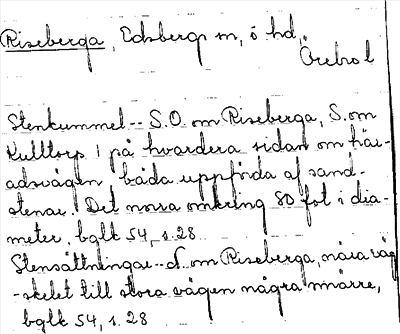 Riseberga, Edsbergs sn, ö hd,
Örebro l
Stenkummel -- S.O. om Riseberga, S. om
Kulltorp 1 på hvardera sidan om här-
adsvägen, båda uppförda af sand-
stenar. Det norra omkring 80 fot i dia-
meter, bglk 54, s. 28
Stensättningar -- N. om Riseberga, nära väg
-skelet till stora vägen några mindre,
bglk 54, s. 28